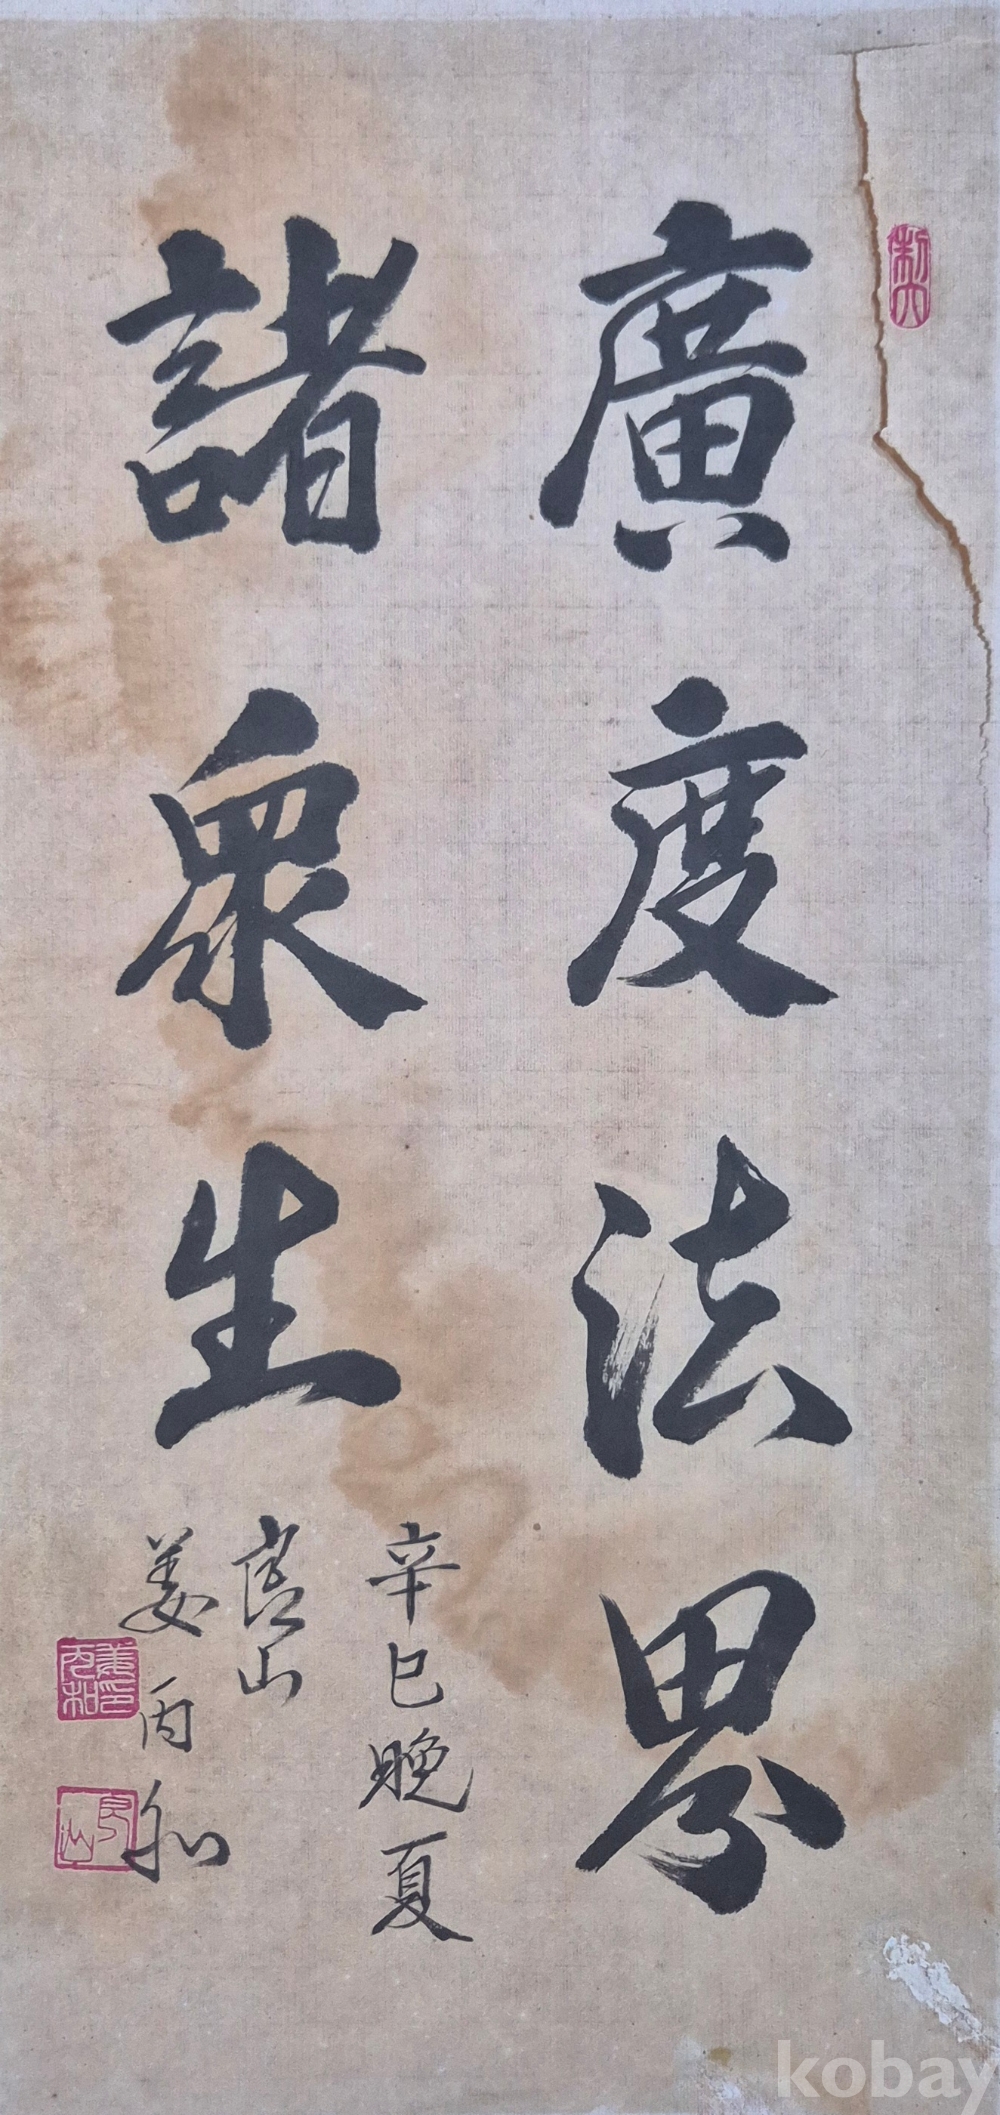 廣度法界
諸眾生
辛巳晚夏
姜丙和
kobay